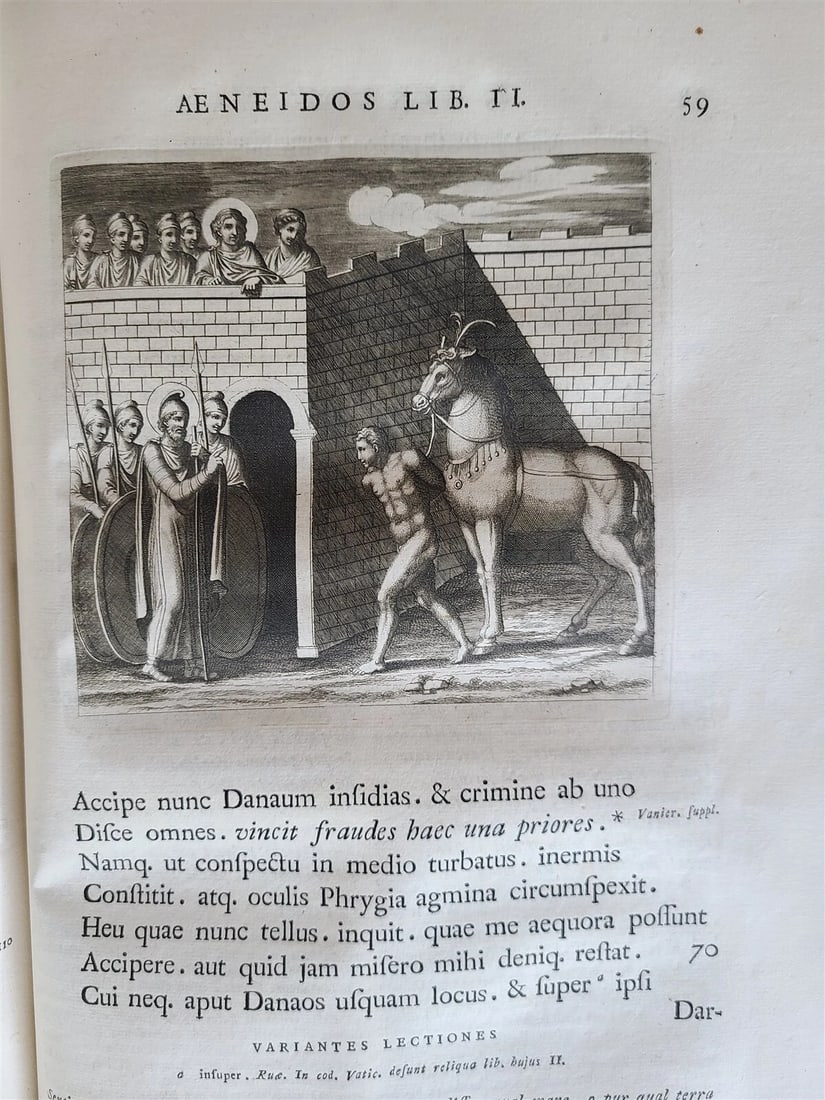 AENEIDOS LIB. II.
59
Accipe nunc Danaum inſidias. & crimine ab uno
Diſce omnes. vincit fraudes haec una priores. * Vanier. ſuppl.
Namq. ut conſpectu in medio turbatus. inermis
Conſtitit. atq. oculis Phrygia agmina circumſpexit.
Heu quae nunc tellus. inquit. quae me aequora poſſunt
Accipere. aut quid jam miſero mihi deniq. reſtat. 70
Cui neq. aput Danaos uſquam locus. & ſuper a ipſi
Dar-
VARIANTES LECTIONES
a inſuper. Ruæ. In cod. Vatic. deſunt reliqua lib. hujus II.
qual terra